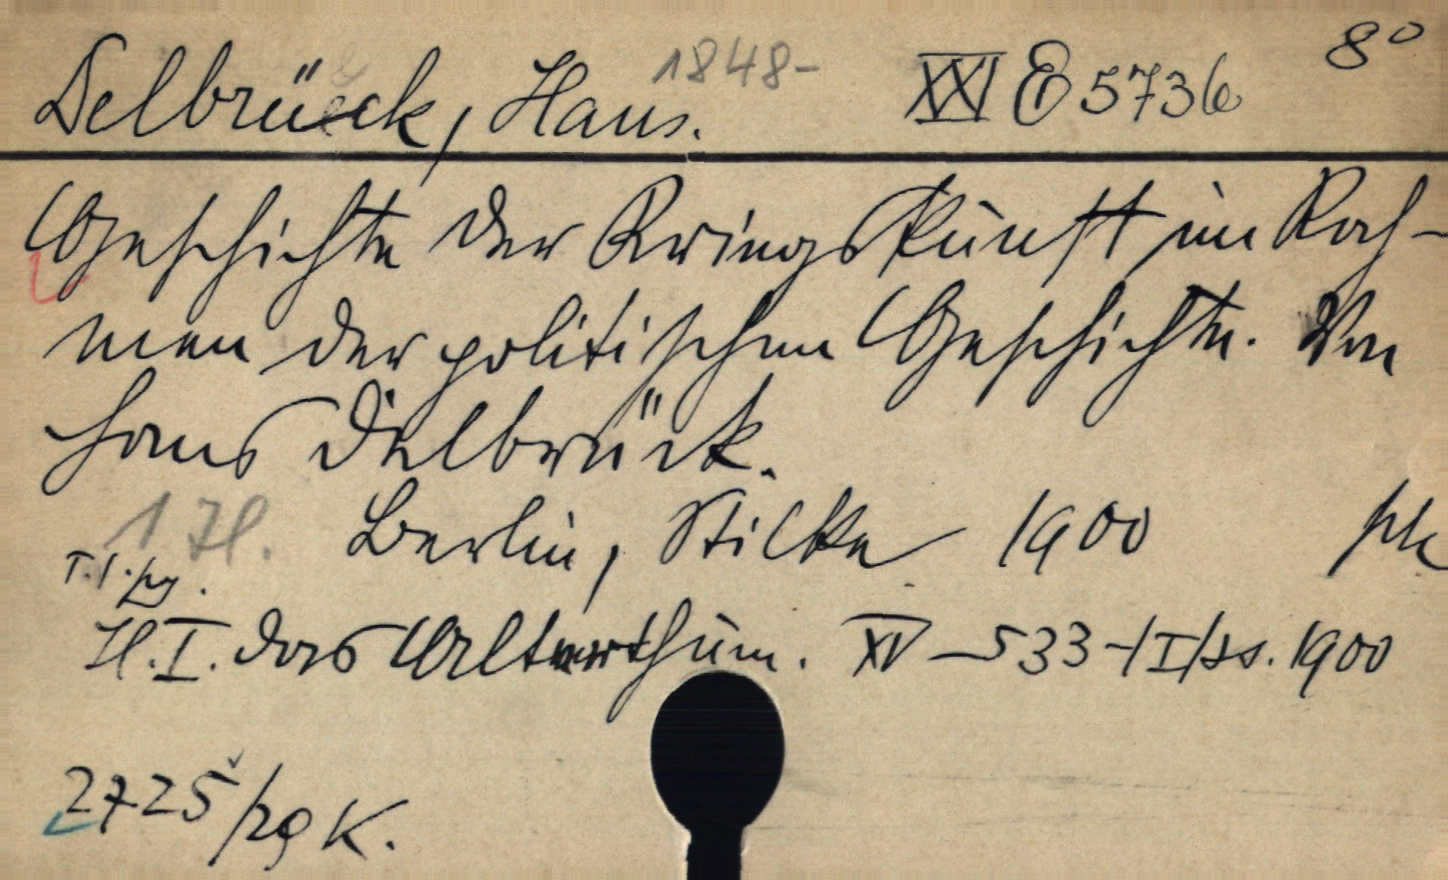 Delbrück, Hans. 1848- XXI E 5736 8°
Geschichte der Kriegskunst im Rah-
men der politischen Geschichte. Von
Hans Delbrück.
1 Tl. Berlin, Stilke 1900
T. I.
Tl. I. Das Alterthum. XV – 533 – /I/ SS. 1900
2725/29 K.